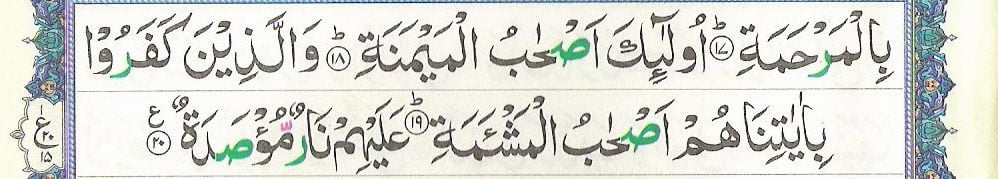 بِالْمَرْحَمَةِ ؕ﴿۱۷﴾ اُولٰٓئِكَ اَصْحٰبُ الْمَيْمَنَةِ ؕ﴿۱۸﴾ وَالَّذِيْنَ كَفَرُوْا
بِاٰيٰتِنَا هُمْ اَصْحٰبُ الْمَشْئَمَةِ ؕ﴿۱۹﴾ عَلَيْهِمْ نَارٌ مُّؤْصَدَةٌ ﴿۲۰﴾ ع
ع ۲۰ ۱۵